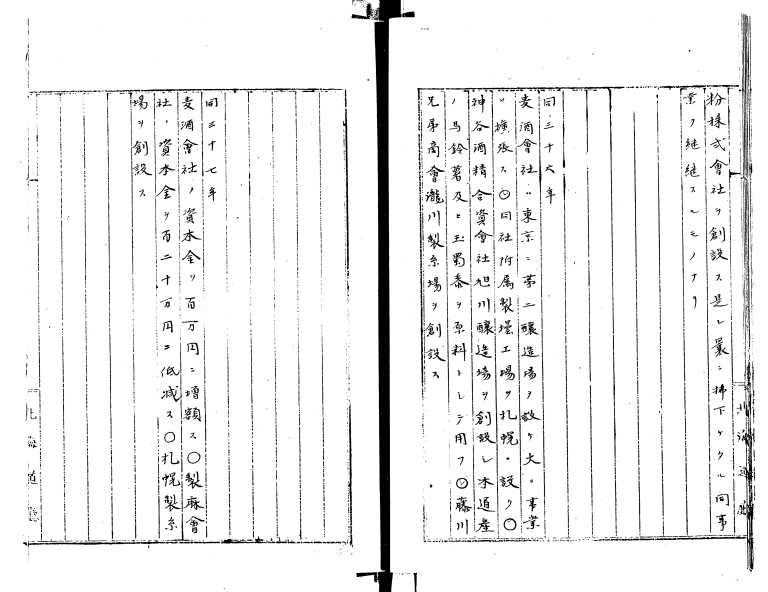 粉株式會社ヲ創設ス是レ曩ニ拂下ケタル同事
業ヲ継続スルモノナリ
同三十六年
麦酒會社ハ東京ニ第二醸造場ヲ設ケ大ニ事業
ヲ擴張ス〇同社附属製壜工場ヲ札幌ニ設ク〇
神谷酒精合資會社旭川醸造場ヲ創設シ本道産
ノ馬鈴薯及ヒ玉蜀黍ヲ原料トシテ用フ〇藤川
兄弟商會瀧川製糸場ヲ創設ス
北海道廳
同三十七年
麦酒會社ノ資本金ヲ百万円ニ増額ス〇製麻會
社ノ資本金ヲ百二十万円ニ低減ス〇札幌製糸
場ヲ創設ス
北海道廳